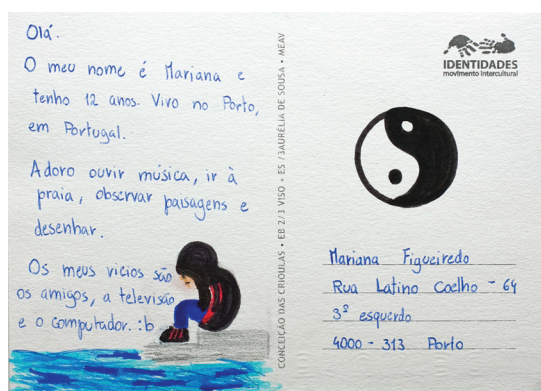 Olá.
O meu nome é Mariana e
tenho 12 anos. Vivo no Porto,
em Portugal.
Adoro ouvir música, ir à
praia, observar paisagens e
desenhar.
Os meus vicios são
os amigos, a televisão
e o computador. :b
CONCEIÇÃO DAS CRIOULAS • EB 2/3 VISO • ES /3AURÉLIA DE SOUSA • MEAV
IDENTIDADES
movimento intercultural
Mariana Figueiredo
Rua Latino Coelho - 64
3º esquerdo
4000 - 313 Porto